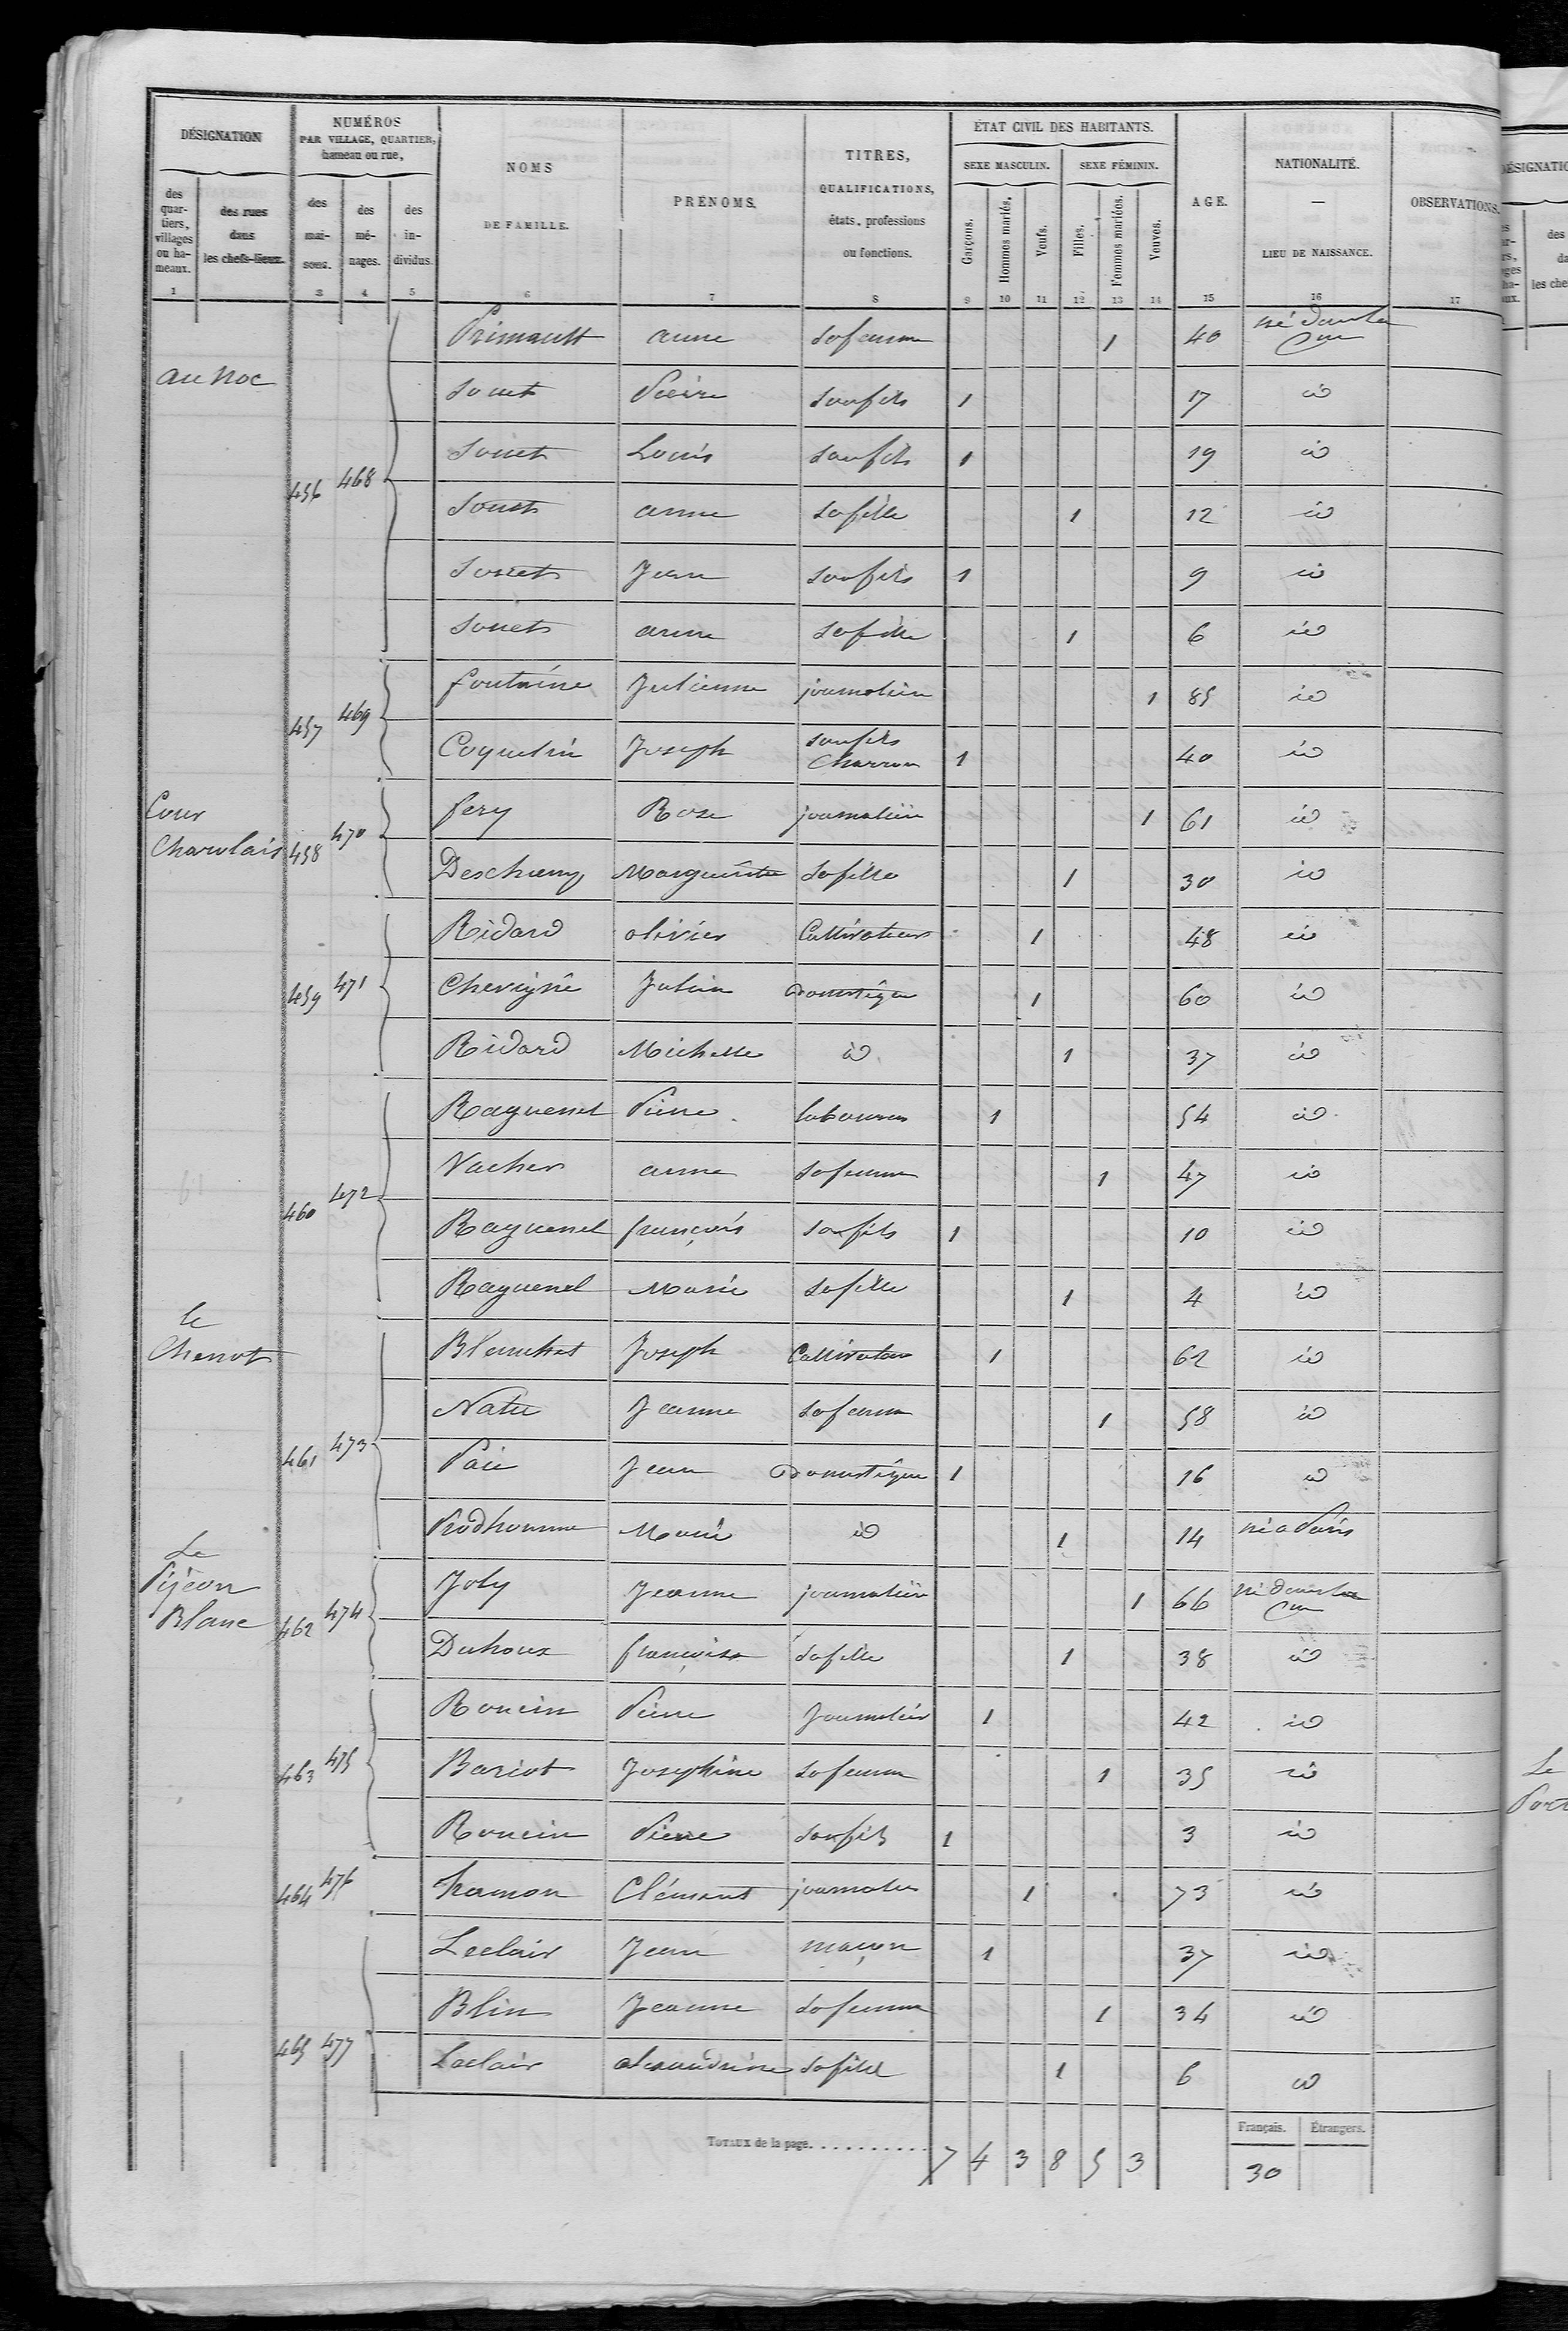 DÉSIGNATION
NUMÉROS PAR VILLAGE, QUARTIER, hameau ou rue,
NOMS DE FAMILLE.
PRÉNOMS.
TITRES, QUALIFICATIONS, états, professions ou fonctions.
ÉTAT CIVIL DES HABITANTS.
SEXE MASCULIN. SEXE FÉMININ.
AGE.
NATIONALITÉ. — LIEU DE NAISSANCE.
OBSERVATIONS.
des quar-tiers, villages ou ha-meaux. des rues dans les chefs-lieux. des mai-sons. des mé-nages. des in-dividus.
Garçons. Hommes mariés. Veufs. Filles. Femmes mariées. Veuves.
1 3 4 5 6 7 8 9 10 11 12 13 14 15 16 17
Primault anne sa femme 1 40 né dans la Cne
au Noc
Souet Pierre son fils 1 17 id
Souet Louis son fils 1 19 id
456 468
Souet anne sa fille 1 12 id
Souet Jean son fils 1 9 id
Souet anne sa fille 1 6 id
457 469
fontaine Julienne journalière 1 85 id
Coquelin Joseph son fils Charron 1 40 id
Cour Charolais
458 470
fery Rose journalière 1 61 id
Deschamp Marguerite sa fille 1 30 id
Ridard olivier Cultivateur 1 48 id
459 471
Chevigné Julien domestique 1 60 id
Ridard Michelle id 1 37 id
Raguenel Pierre laboureur 1 54 id
Vacher anne sa femme 1 47 id
460 472
Raguenel françois son fils 1 10 id
Raguenel Marie sa fille 1 4 id
le Chenot
Blanchet Joseph Cultivateur 1 62 id
Natu Jeanne sa femme 1 58 id
461 473
Jean domestique 1 16 id
Prodhomme Marie id 1 14 né a Paris
Le Pijeon Blanc
462 474
Joly Jeanne journalière 1 66 né dans la Cne
Duhoux françoise sa fille 1 38 id
Roncin Pierre Journalier 1 42 id
463 475
Bariot Josephine sa femme 1 35 id
Roncin Pierre son fils 1 3 id
464 476
hamon Clément journalier 1 73 id
Leclair Jean maçon 1 37 id
Blin Jeanne sa femme 1 34 id
465 477
Leclair alexandrine sa fille 1 6 id
Français. Étrangers.
TOTAUX de la page. 7 4 3 8 5 3 30
DÉSIGNATIO
les che
Le
Port